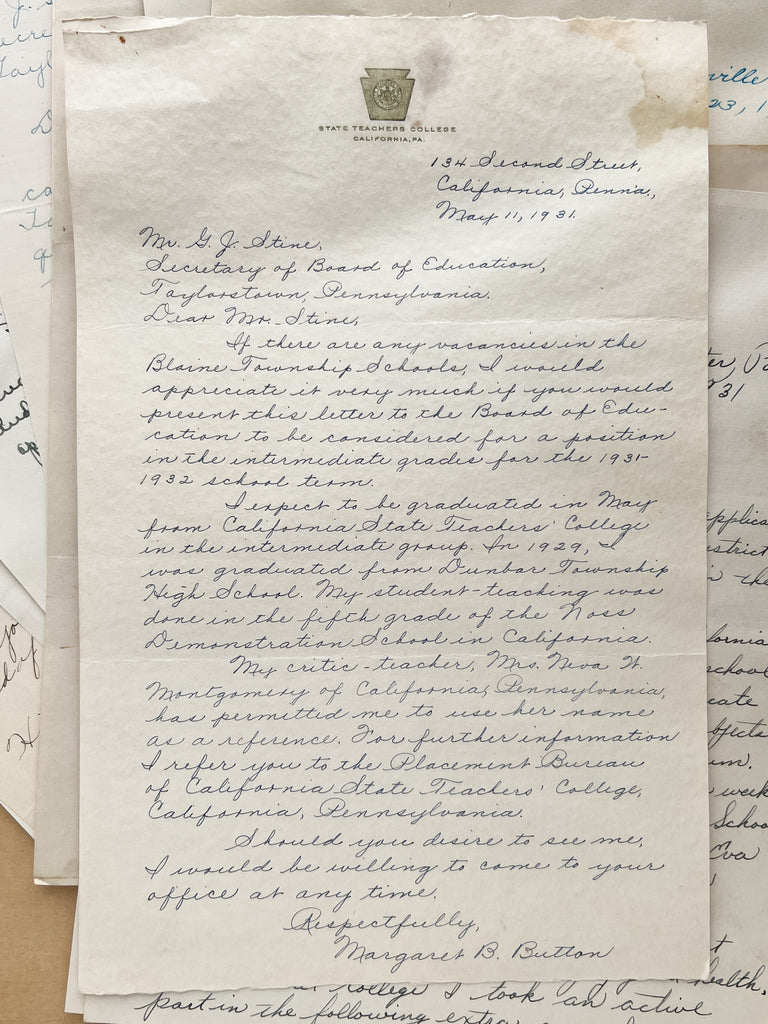 STATE TEACHERS COLLEGE
CALIFORNIA, PA.
134 Second Street,
California, Penna.,
May 11, 1931.
Mr. G. J. Stine,
Secretary of Board of Education,
Taylorstown, Pennsylvania.
Dear Mr. Stine,
If there are any vacancies in the
Blaine Township Schools, I would
appreciate it very much if you would
present this letter to the Board of Edu-
cation to be considered for a position
in the intermediate grades for the 1931-
1932 school term.
I expect to be graduated in May
from California State Teachers' College
in the intermediate group. In 1929, I
was graduated from Dunbar Township
High School. My student-teaching was
done in the fifth grade of the Noss
Demonstration School in California.
My critic-teacher, Mrs. Neva W.
Montgomery of California, Pennsylvania,
has permitted me to use her name
as a reference. For further information
I refer you to the Placement Bureau
of California State Teachers' College,
California, Pennsylvania.
Should you desire to see me,
I would be willing to come to your
office at any time.
Respectfully,
Margaret B. Button
ville
23, 1
31
applica
istrict
in the
fornia
school
cate
bjects
um.
week
Schoo
Eva
health,
college I took an active
part in the following extra